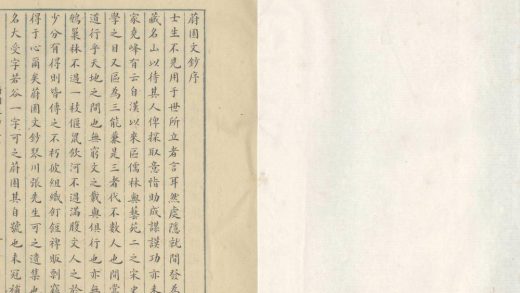 蔚園文鈔序
士生不見用于世所立者言耳然處隱就間發爲
藏名山以待其人俾採取意恉助成謀謨功亦未
家堯峰有云自漢以來區儒林與藝苑二之宋史
學之日又區為三能兼是三者代不數人也間嘗
道行乎天地之間也無窮文之載與俱行也亦無
鷦巢林不過一枝偃鼠飲河不過滿腹文人之於
少分有得則皆傳之不朽彼組織飣餖裨販剽竊
得于心爾矣蔚園文鈔琴川張先生可之遺集也
名大受字若谷一字可之蔚園其自號也未冠補